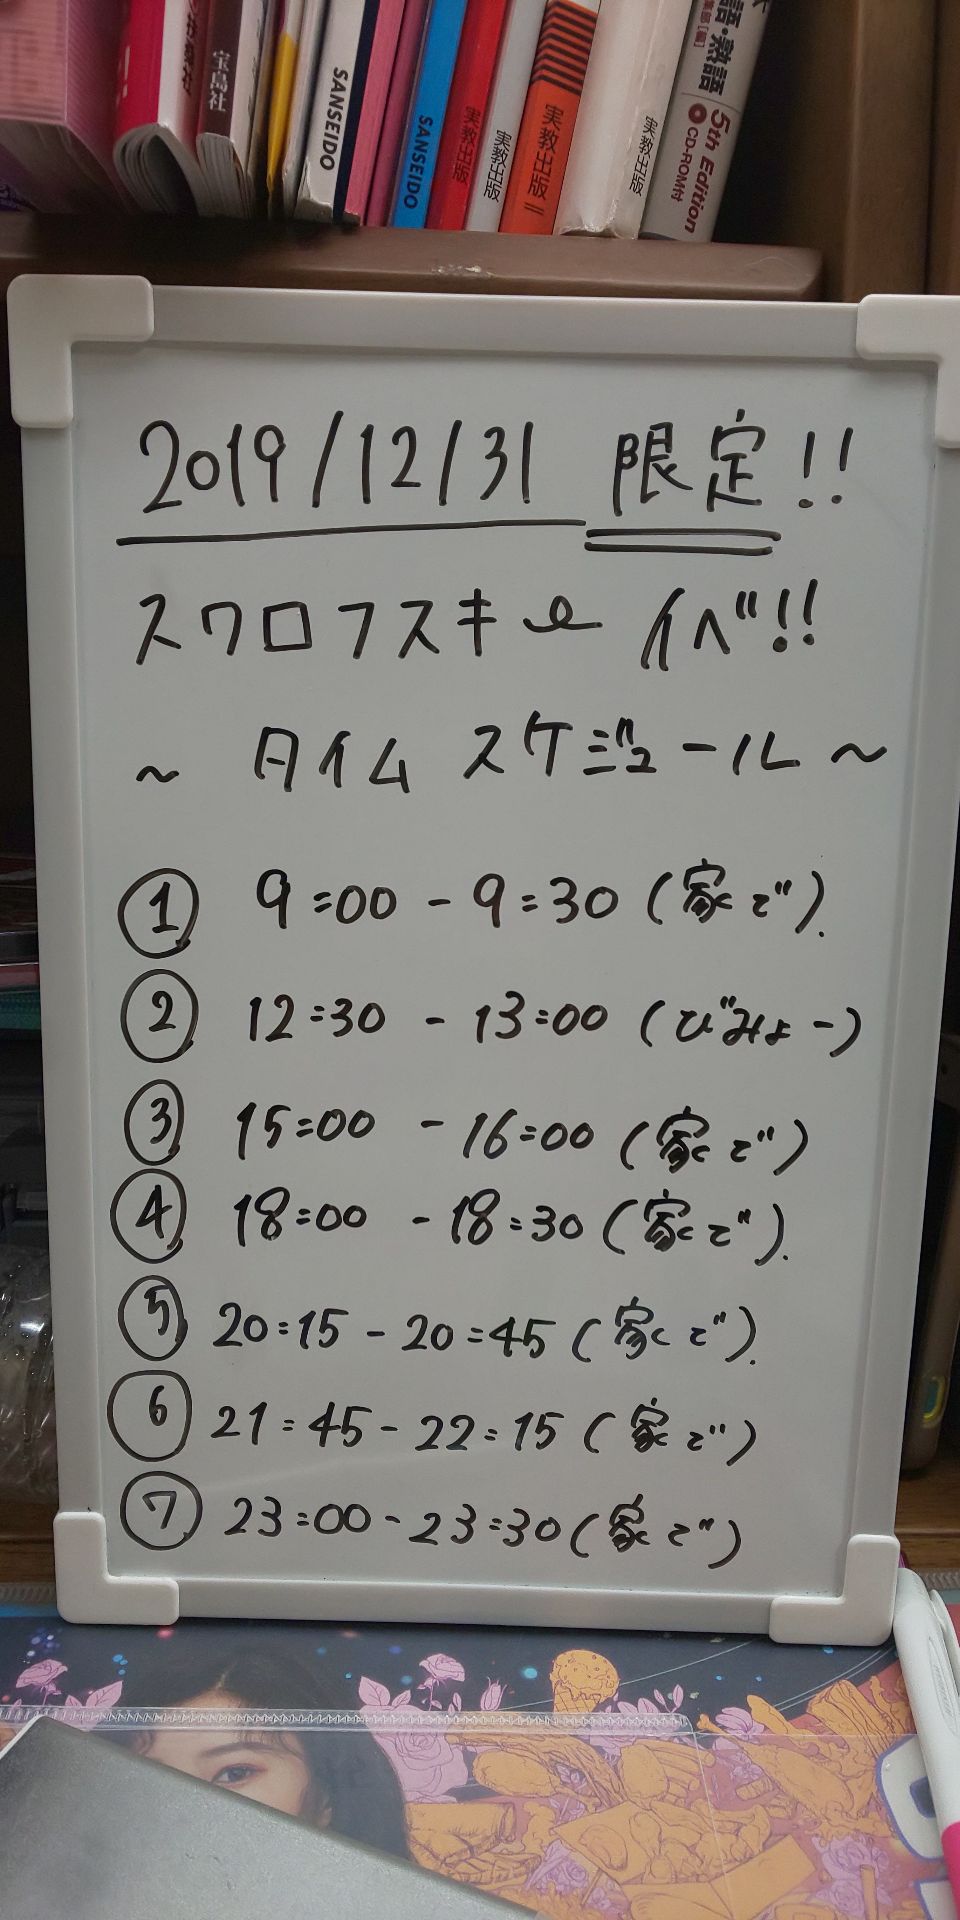 宝島社
SANSEIDO
SANSEIDO
実教出版
実教出版
実教出版
実教出版
語・熟語
5th Edition
CD-ROM付
2019/12/31 限定!!
スワロフスキー イベ!!
~ タイム スケジュール ~
① 9:00 - 9:30 (家で).
② 12:30 - 13:00 (びみょー)
③ 15:00 - 16:00 (家で)
④ 18:00 - 18:30 (家で).
⑤ 20:15 - 20:45 (家で).
⑥ 21:45 - 22:15 (家で)
⑦ 23:00 - 23:30 (家で)